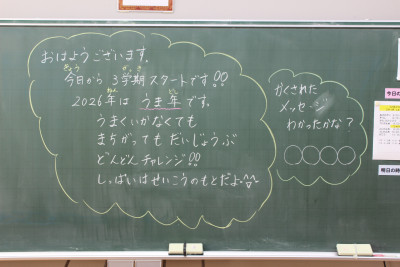 おはようございます。
今日から 3学期スタートです!!
2026年は うま年です。
うまくいかなくても
まちがっても だいじょうぶ
どんどん チャレンジ!!
しっぱいは せいこうのもとだよ^^
かくされた
メッセージ
わかったかな?
○○○○
今日の
明日の時